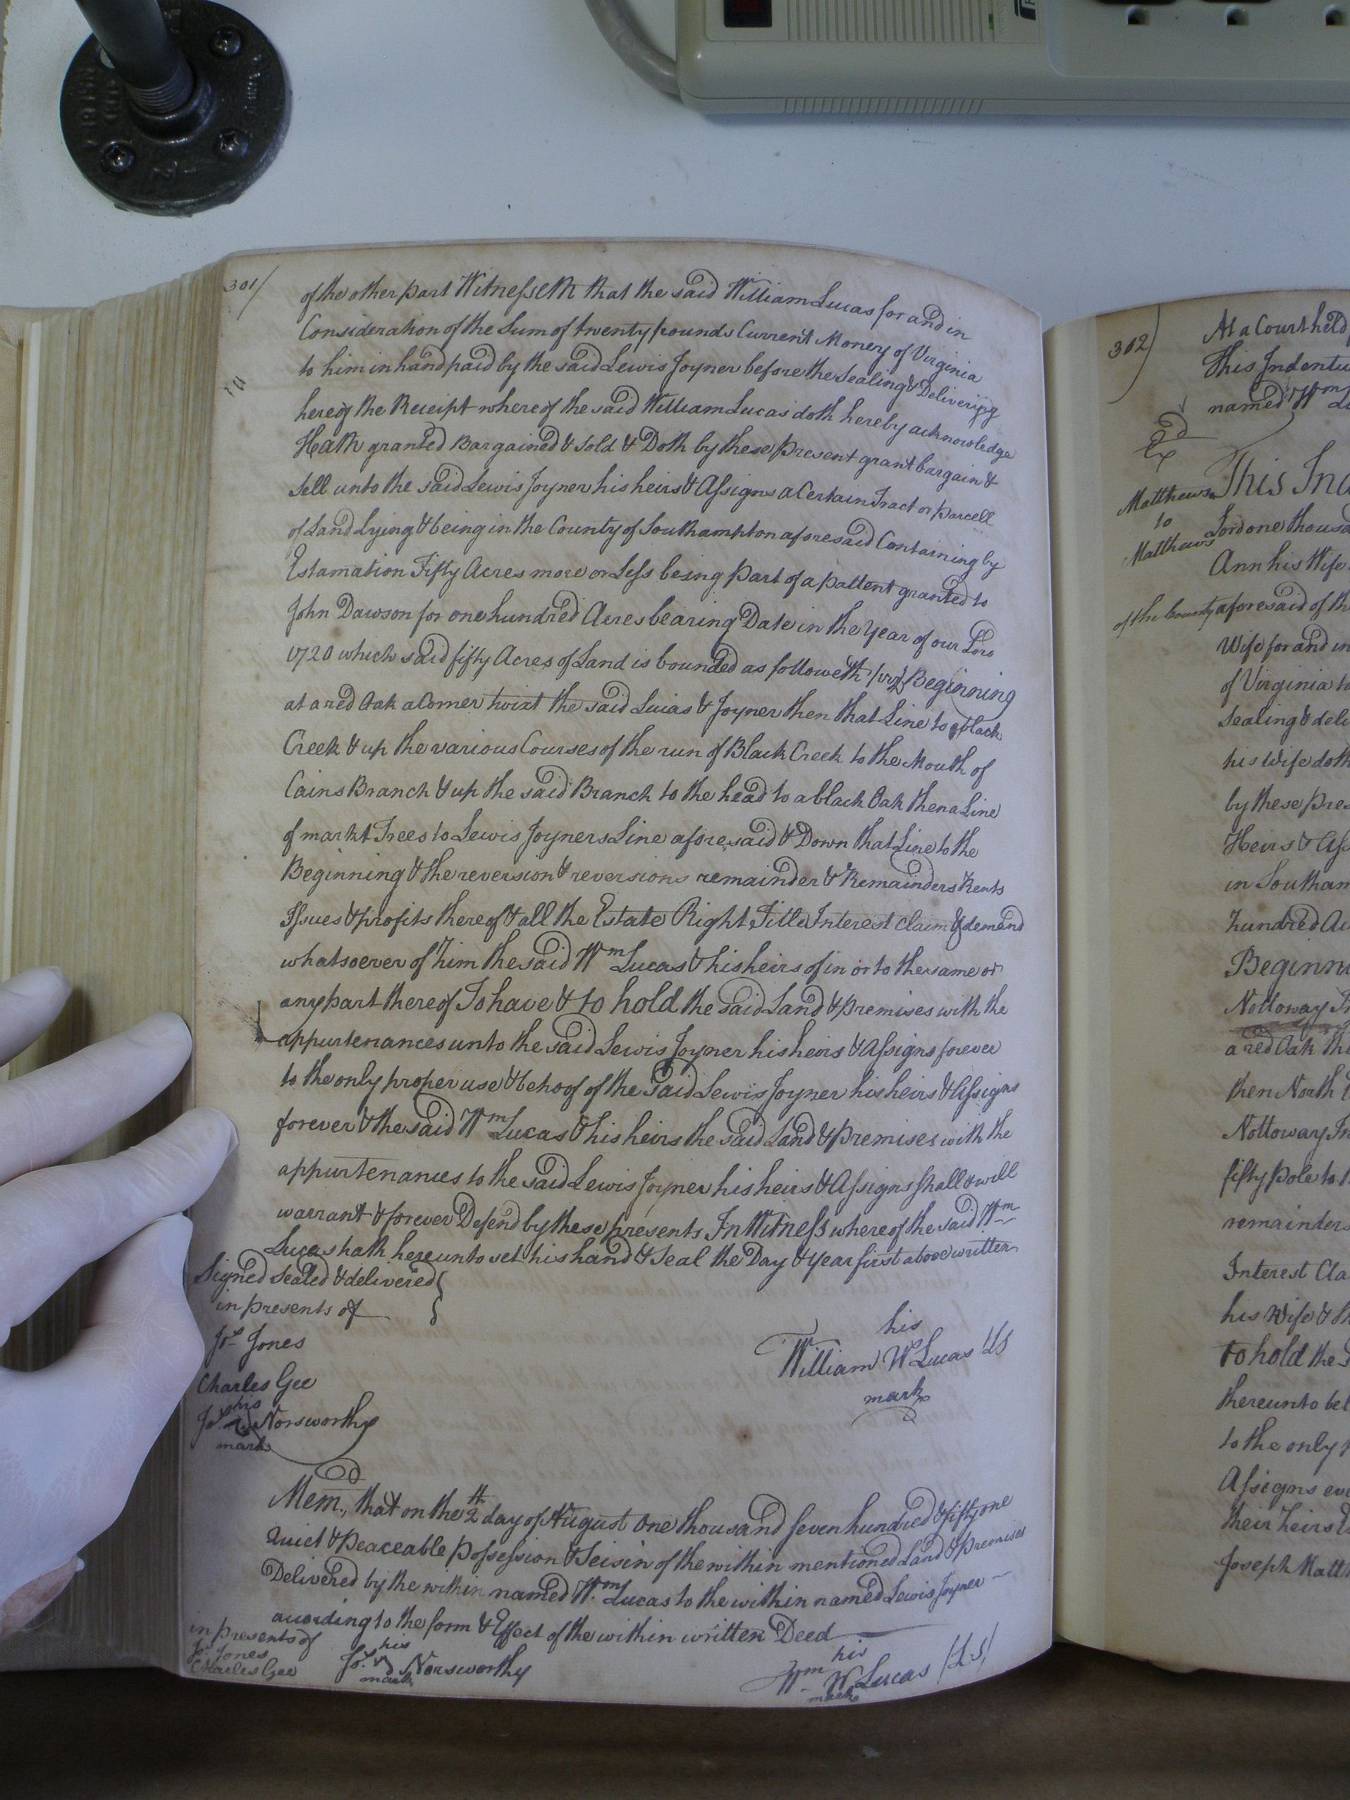 301/
of the other part Witnesseth that the said William Lucas for and in
Consideration of the Sum of twenty pounds Current Money of Virginia
to him in hand paid by the said Lewis Joyner before the Sealing & Delivering
hereof the Receipt whereof the said William Lucas doth hereby acknowledge
Hath granted Bargained & Sold & Doth by these Present grant bargain &
Sell unto the said Lewis Joyner his heirs & Assigns a Certain Tract or parcell
of Land Lying & being in the County of Southampton aforesaid Containing by
Estamation Fifty Acres more or Less being part of a pattent granted to
John Dawson for one hundred Acres bearing Date in the Year of our Lord
1720 which said fifty Acres of Land is bounded as followeth (viz) Beginning
at a red Oak a Corner twixt the said Lucas & Joyner then that Line to black
Creek & up the various Courses of the run of Black Creek to the Mouth of
Cains Branch & up the said Branch to the head to a black Oak then a Line
of markt Trees to Lewis Joyners Line aforesaid & Down that Line to the
Beginning & the reversion & reversions remainder & Remainders Rents
Issues & profits thereof & all the Estate Right Title Interest claim & demand
whatsoever of him the said Wm Lucas & his heirs of in or to the same or
any part thereof To have & to hold the said Land & premises with the
appurtenances unto the said Lewis Joyner his heirs & Assigns forever
to the only proper use & behoof of the said Lewis Joyner his heirs & Assigns
forever & the said Wm Lucas & his heirs the said Land & premises with the
appurtenances to the said Lewis Joyner his heirs & Assigns shall & will
warrant & forever Defend by these presents In Witness whereof the said Wm
Lucas hath hereunto set his hand & Seal the Day & Year first above written
Signed Sealed & delivered
in presents of
Jos Jones
Charles Gee
his
Jos Norsworthy
mark
his
William W Lucas LS
mark
Mem. that on the 2th day of August One thousand Seven hundred & fifty one
Quiet & Peaceable Possession & Seisin of the within mentioned Land & Premises
Delivered by the within named Wm Lucas to the within named Lewis Joyner
according to the form & Effect of the within written Deed
in presents of
Jos Jones
Charles Gee
his
Jos Norsworthy
mark
his
Wm W Lucas (LS)
mark
302)
At a Court held
This Indentu
named Wm L
Matthews
to
Matthews
This Ind
Lord one thousa
Ann his Wife
of the County aforesaid of th
Wife for and in
of Virginia to
Sealing & deli
his Wife doth
by these pres
Heirs & Ass
in Southam
hundred Ac
Beginni
Nottoway
a red Oak th
then North
Nottoway
fifty pole to
remainders
Interest Cla
his Wife & th
to hold the
thereunto bel
to the only
Assigns eve
their heirs
Joseph Matt